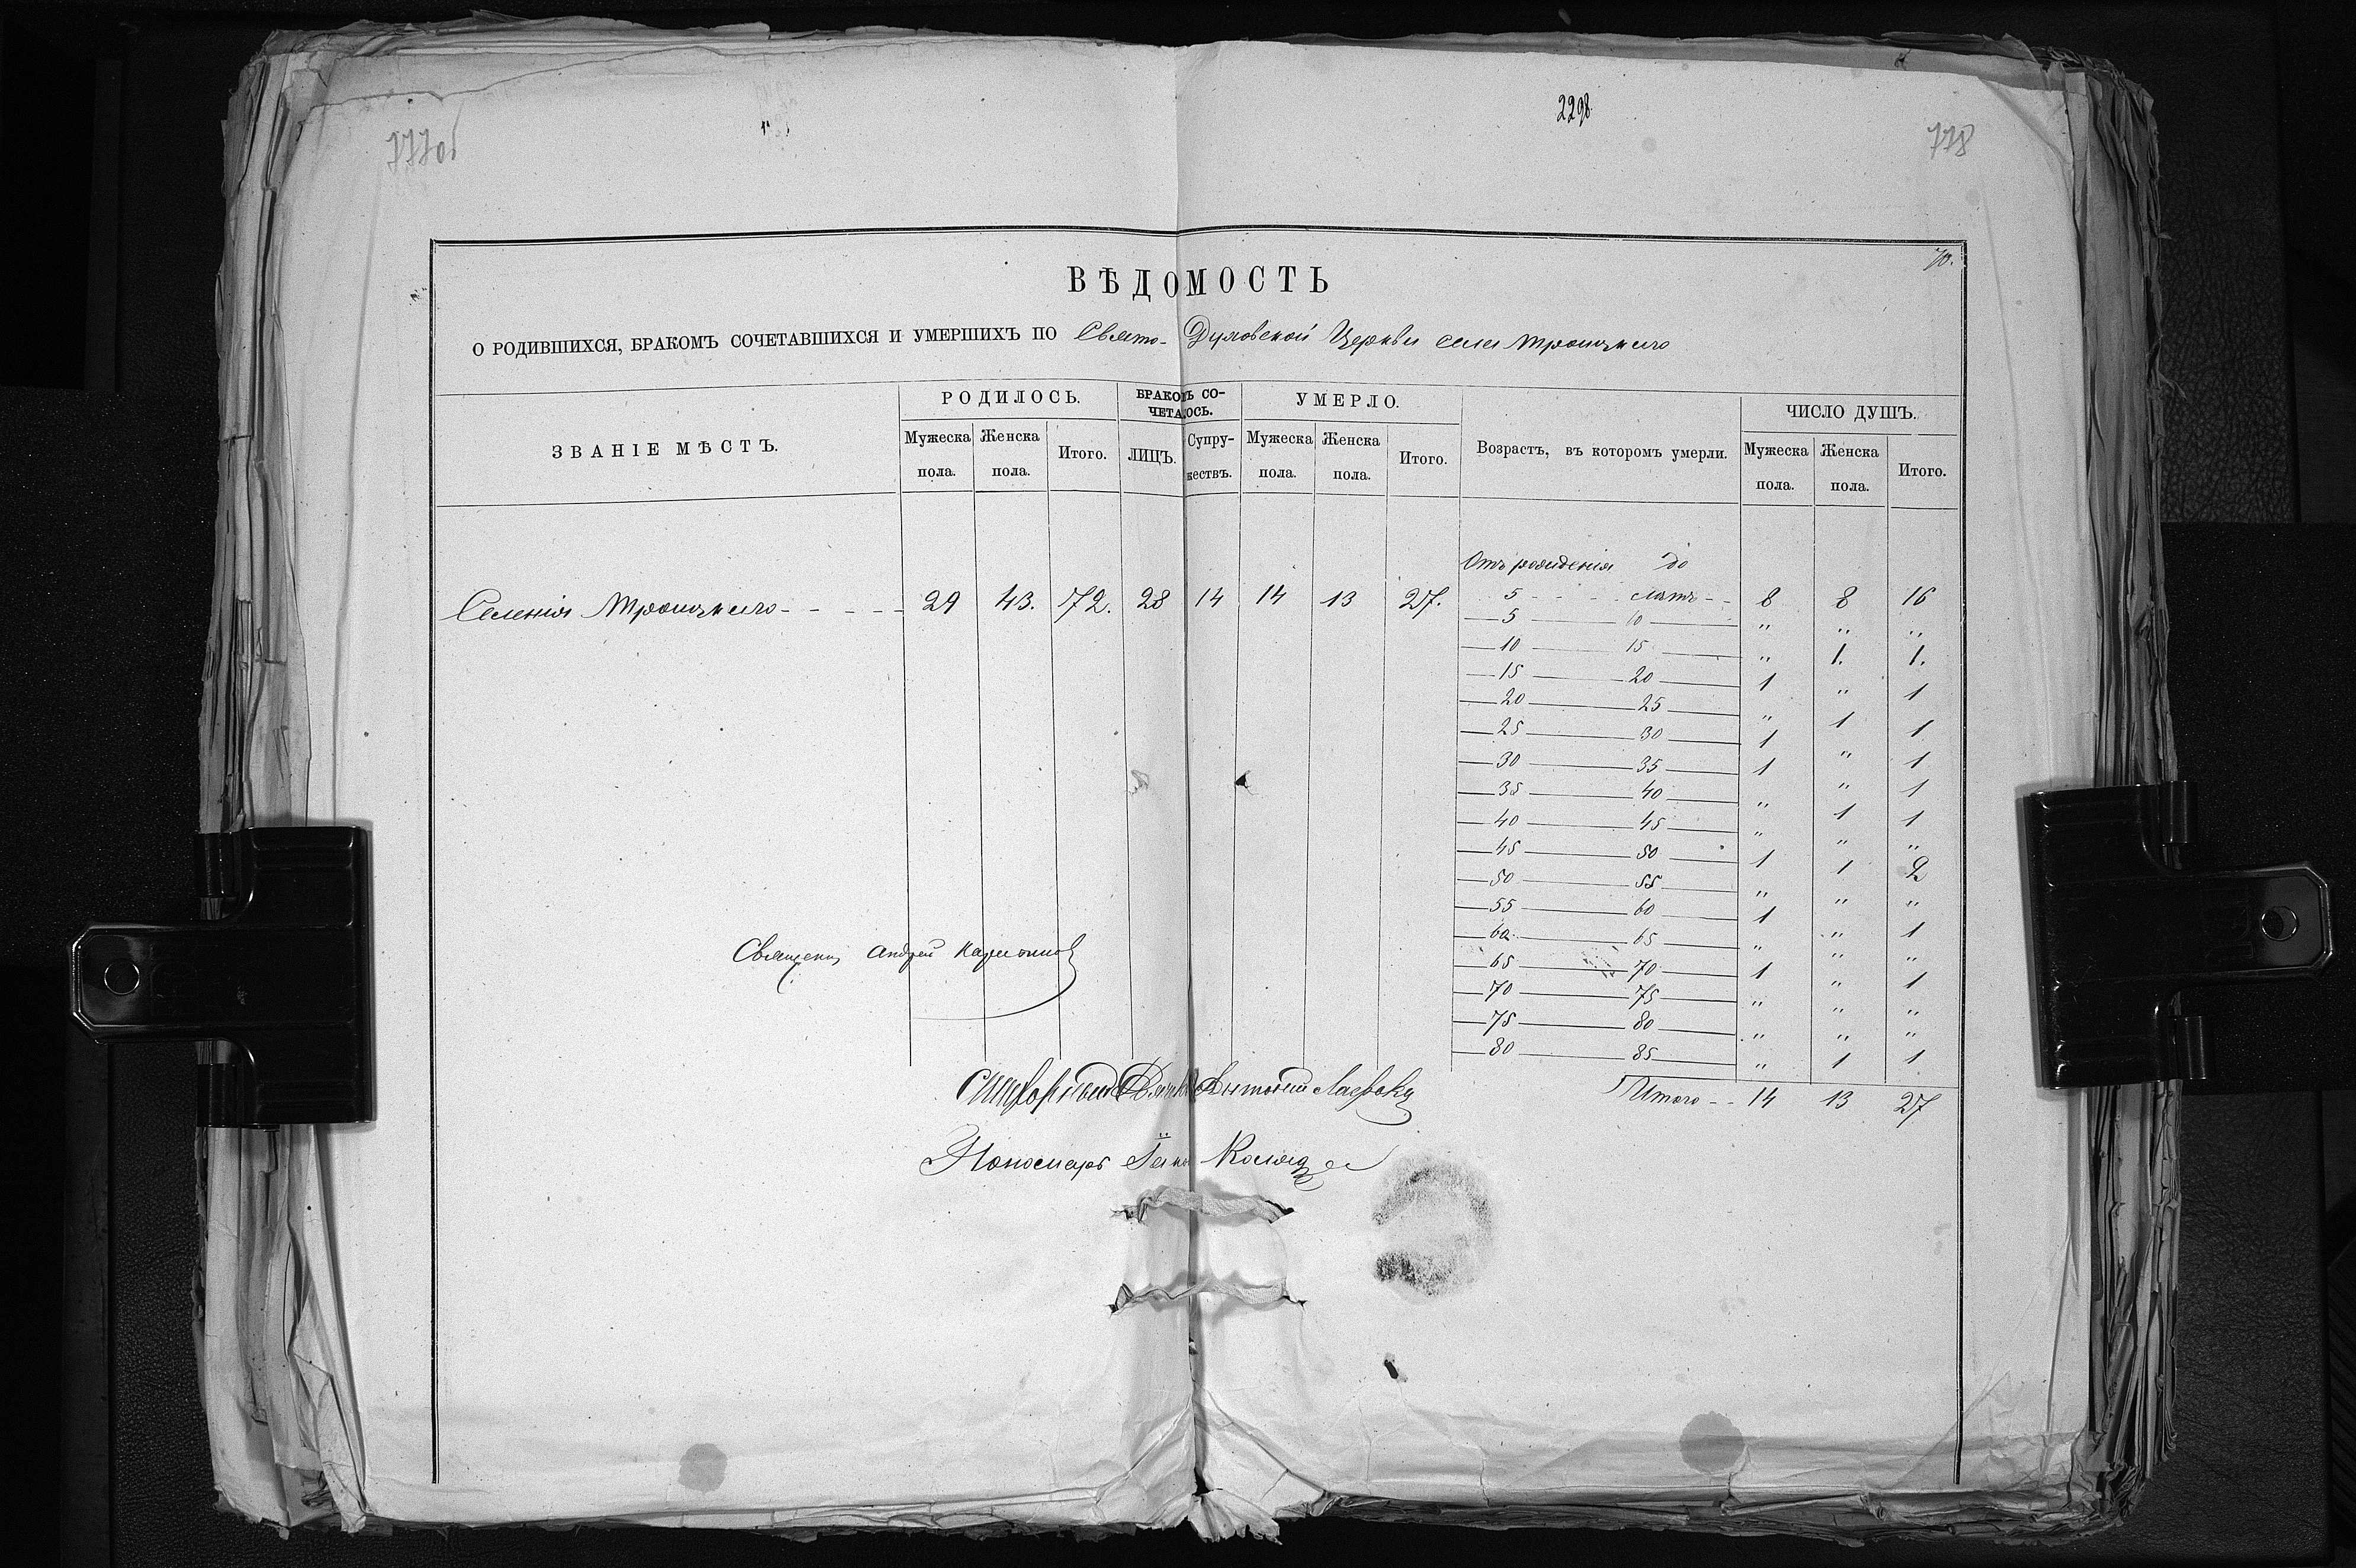 777об
2298
778
70.
ВѢДОМОСТЬ
О РОДИВШИХСЯ, БРАКОМЪ СОЧЕТАВШИХСЯ И УМЕРШИХЪ ПО Свято-Духовской Церкви села Троицкаго
ЗВАНІЕ МѢСТЪ. РОДИЛОСЬ. БРАКОМЪ СО- УМЕРЛО. Возрастъ, въ которомъ умерли. ЧИСЛО ДУШЪ.
ЧЕТАЛОСЬ.
Мужеска Женска Итого. ЛИЦЪ. Супру- Мужеска Женска Итого. Мужеска Женска Итого.
пола. пола. жествъ. пола. пола. пола. пола.
Отъ рожденія до
Селенія Троицкаго - - - - - 29 43. 72. 28 14 14 13 27. 5 - - - лѣтъ - - 8 8 16
5 10 " " "
10 15 " 1. 1.
15 20 1 " 1
20 25 " 1 1
25 30 1 " 1
30 35 1 " 1
35 40 " 1 1
40 45 " " "
45 50 1 1 2
50 55 " " "
55 60 1 " 1
60 65 " " "
65 70 1 " 1
70 75 " " "
75 80 " " "
80 85 " 1 1
Итого - - 14 13 27
Священ Андрей
Антоній
Пономарь